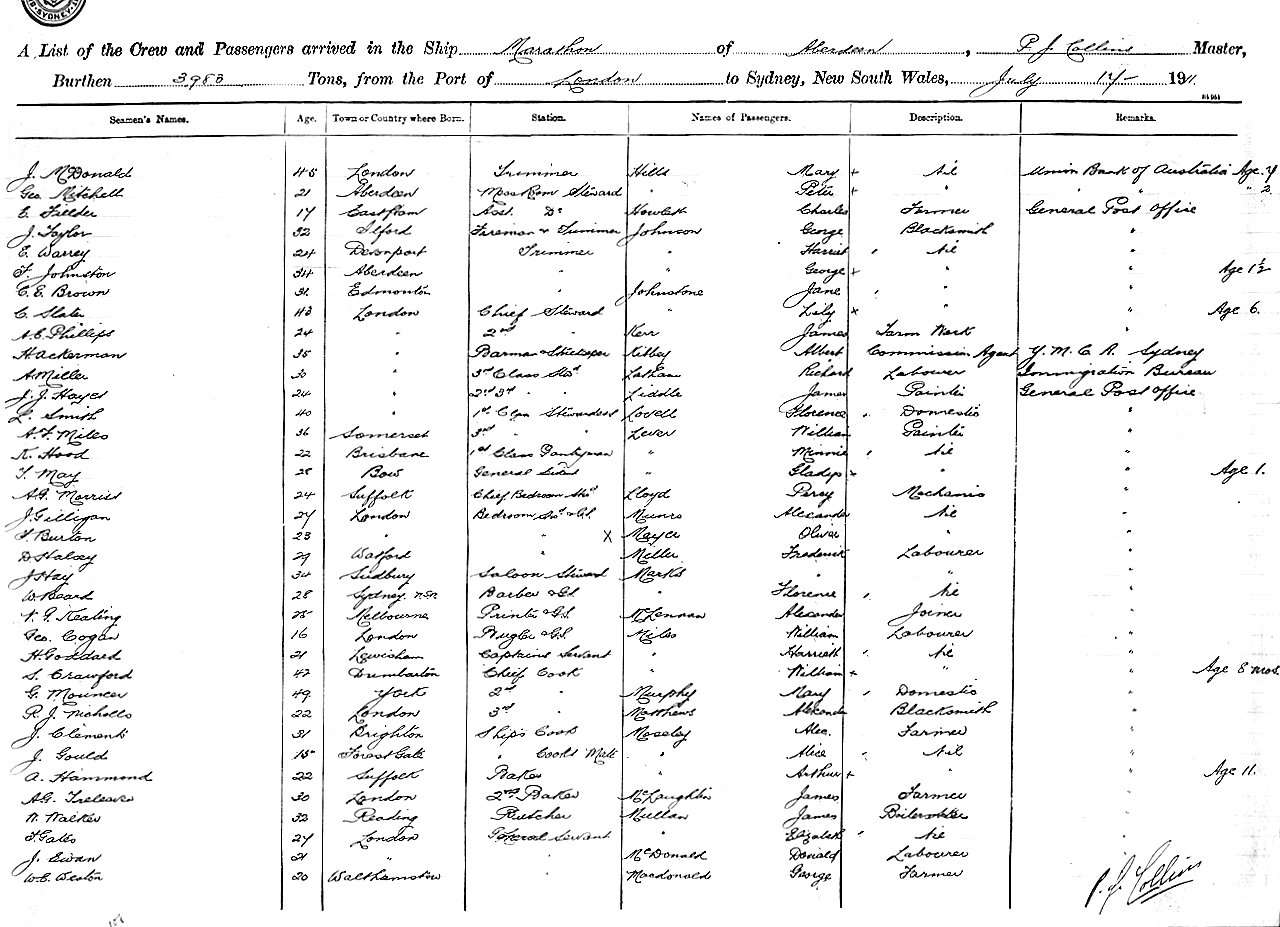 SYDNEY
A List of the Crew and Passengers arrived in the Ship Marathon of Aberdeen, P J Collins Master,
Burthen 3983 Tons, from the Port of London to Sydney, New South Wales, July 14 - 1911.
Seamen's Names. Age. Town or Country where Born. Station. Names of Passengers. Description. Remarks.
J. McDonald 45 London Trimmer Hills Mary + Nil Union Bank of Australia Age 4
Geo. Mitchell 21 Aberdeen Mess Room Steward " Peter + " " " 2
E. Fielder 17 East Ham Asst. Do Howlett Charles Farmer General Post Office
J. Taylor 32 Ilford Fireman & Trimmer Johnson George Blacksmith "
E. Warrey 24 Devonport Trimmer " Harriet Nil "
F. Johnston 34 Aberdeen " " George + " " Age 1½
C. E. Brown 31 Edmonton Johnstone Jane " "
C. Slater 43 London Chief Steward " Lily + " " Age 6.
A. E. Phillips 24 " 2nd " Kerr James Farm Work "
H. Ackerman 35 " Barman & Storekeeper Kilbey Albert Commission Agent Y. M. C. A. Sydney
A. Miller " 3rd Class Richard Labourer Immigration Bureau
J. J. Hayes 24 " 2nd 3rd " " Liddle James Painter General Post Office
L. Smith 40 " 1st Class Stewardess Lovell Florence Domestic "
A. F. Miles 36 Somerset 3rd " " Lever William Painter "
K. Hood 22 Brisbane 1st Class Pantryman " Minnie Nil "
T. May 28 Bow General Servt " Gladys + " " Age 1.
A. G. Morris 24 Suffolk Chief Bedroom Lloyd Percy Mechanic "
J. Gilligan 27 London Bedroom & G.S. Munro Alexander Nil "
F. Burton 23 " " X Mayer Oliver " "
D. Halsey 29 Watford " Miller Frederick Labourer "
J. Hay 34 Sudbury Saloon Steward Marks " " "
W. Beard 28 Sydney N.S.W. Barber & G.S. " Florence Nil "
N. G. Keating 25 Melbourne Printer & G.S. McLennan Alexander Joiner "
Geo. Cogan 16 London Bugler & G.S. Miles William Labourer "
H. Goddard 21 Lewisham Captains Servant " Harriett Nil "
S. Crawford 42 Dumbarton Chief Cook " William + " " Age 8 mos.
G. Mouncer 49 York 2nd " Murphy Mary Domestic "
R. J. Nicholls 22 London 3rd " Matthews Alexander Blacksmith "
J. Clements 31 Brighton Ships Cook Moseley Alec. Farmer "
J. Gould 18 Forest Gate " Cooks Mate " Alice Nil "
A. Hammond 22 Suffolk Baker " Arthur + " " Age 11.
A. G. Treleaven 30 London 2nd Baker McLaughlin James Farmer "
W. Walker 32 Reading Butcher Mullan James Boilermaker "
F. Gates 27 London General Servant " Elizabeth Nil "
J. Swan 21 " McDonald Donald Labourer
W. E. Weston 20 Walthamstow " Macdonald George Farmer
P. J. Collins